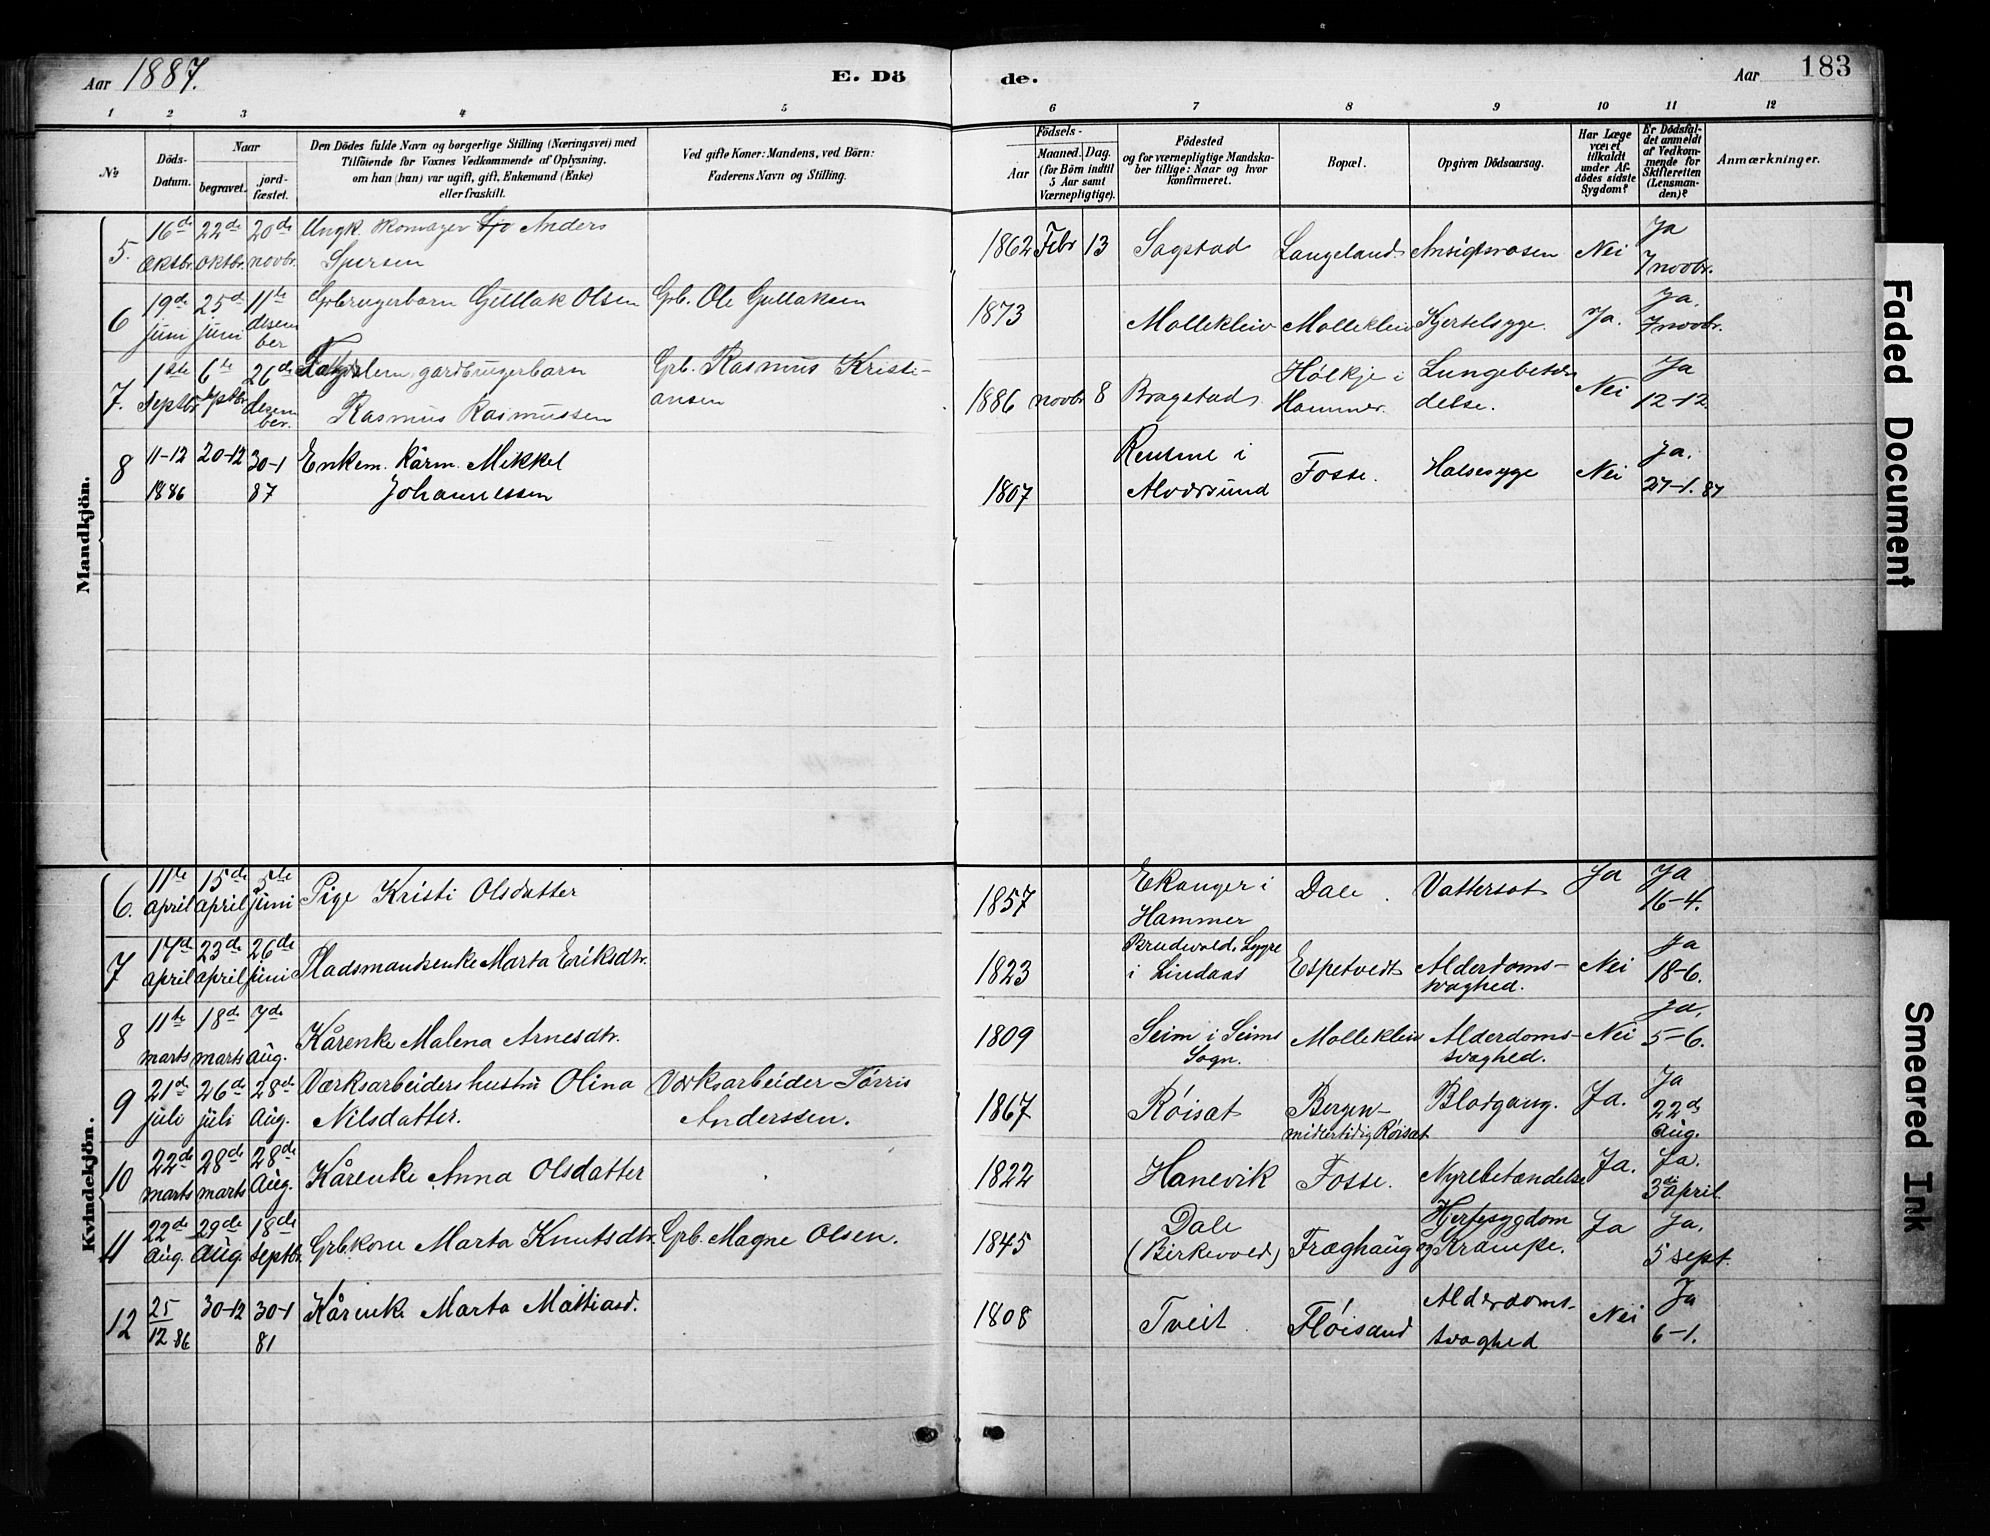 Aar 1887.
E. Dö
de.
Aar
183
1 2 3 4 5 6 7 8 9 10 11 12
No
Döds-
Datum.
Naar
begravet.
jord-
fæstet.
Den Dödes fulde Navn og borgerlige Stilling (Næringsvei) med
Tilföiende for Voxnes Vedkommende af Oplysning,
om han (hun) var ugift, gift, Enkemand (Enke)
eller fraskilt.
Ved gifte Koner: Mandens, ved Börn:
Faderens Navn og Stilling.
Födsels-
Aar
Maaned.
Dag.
(for Börn indtil
5 Aar samt
Værnepligtige).
Födested
og for værnepligtige Mandska-
ber tillige: Naar og hvor
konfirmeret.
Bopæl.
Opgiven Dödsaarsag.
Har Læge
været
tilkaldt
under Af-
dödes sidste
Sygdom?
Er Dödsfal-
det anmeldt
af Vedkom-
mende for
Skifteretten
(Lensman-
den)?
Anmærkninger.
Mandkjön.
5. 16de oktbr. 22de oktbr. 20de novbr. Ungk. Anders 1862 Febr 13 Sagstad Langeland Ansigtsrosen Nei Ja 7 novbr.
6 19de juni 25de juni 11te desember Grbrugerbarn Gullak Olsen Grb. Ole Gullaksen 1873 Mollekleiv Mollekleiv Kjertelsyge. Ja. Ja. 7 novbr.
7. 1ste Septbr. 6te Septbr. 26de desember. gardbrugerbarn
Rasmus Rasmussen Grb. Rasmus Kristi-
ansen 1886 novbr 8 Bragstad Hölkje i
Hammer. Lungebetæn
delse. Nei Ja 12-12.
8 11-12 1886 20-12 30-1 87 Enkem. Kårm. Mikkel
Johannessen 1807 i
Alversund Fosse. Halsesyge Nei Ja. 27-1. 87
Kvindekjön.
6. 11te april 15de april 5te juni Pige Kristi Olsdatter 1857 Ekanger i
Hammer Dale. Vattersot Ja Ja 16-4.
7 17de april 23de april 26de juni Pladsmandsenke Marta Eriksdtr. 1823 Lygre
i Lindaas Espetvedt Alderdoms-
svaghed. Nei Ja 18-6.
8 11te marts 18de marts 7de aug. Kårenke Malena Arnesdtr. 1809 Seim i Seims
Sogn. Mollekleiv Alderdoms-
svaghed. Nei Ja, 5-6.
9 21de juli 26de juli 28de Aug. Værksarbeiders hustru Olina
Nilsdatter. Værksarbeider Törris
Anderssen. 1867 Röisat Bergen-
midlertidig Röisat Blodgang. Ja. Ja 22de Aug.
10 22de marts 28de marts 28de Aug. Kårenke Anna Olsdatter 1822 Hanevik Fosse. Nyrebetændelse Ja. Ja. 3die april.
11 22de Aug. 29de Aug. 18de Septbr. Grbkone Marta Knutsdtr. Grb. Magne Olsen. 1845 Dale
(Birkevold) Fræghaug Hjertesygdom
og Krampe. Ja Ja, 5 sept.
12 25/12 86 30-12 30-1 81 Kårenke Marta Mattiasd. 1808 Tveit Flöisand Alderdoms-
svaghed Nei Ja 6-1.
Faded Document
Smeared Ink